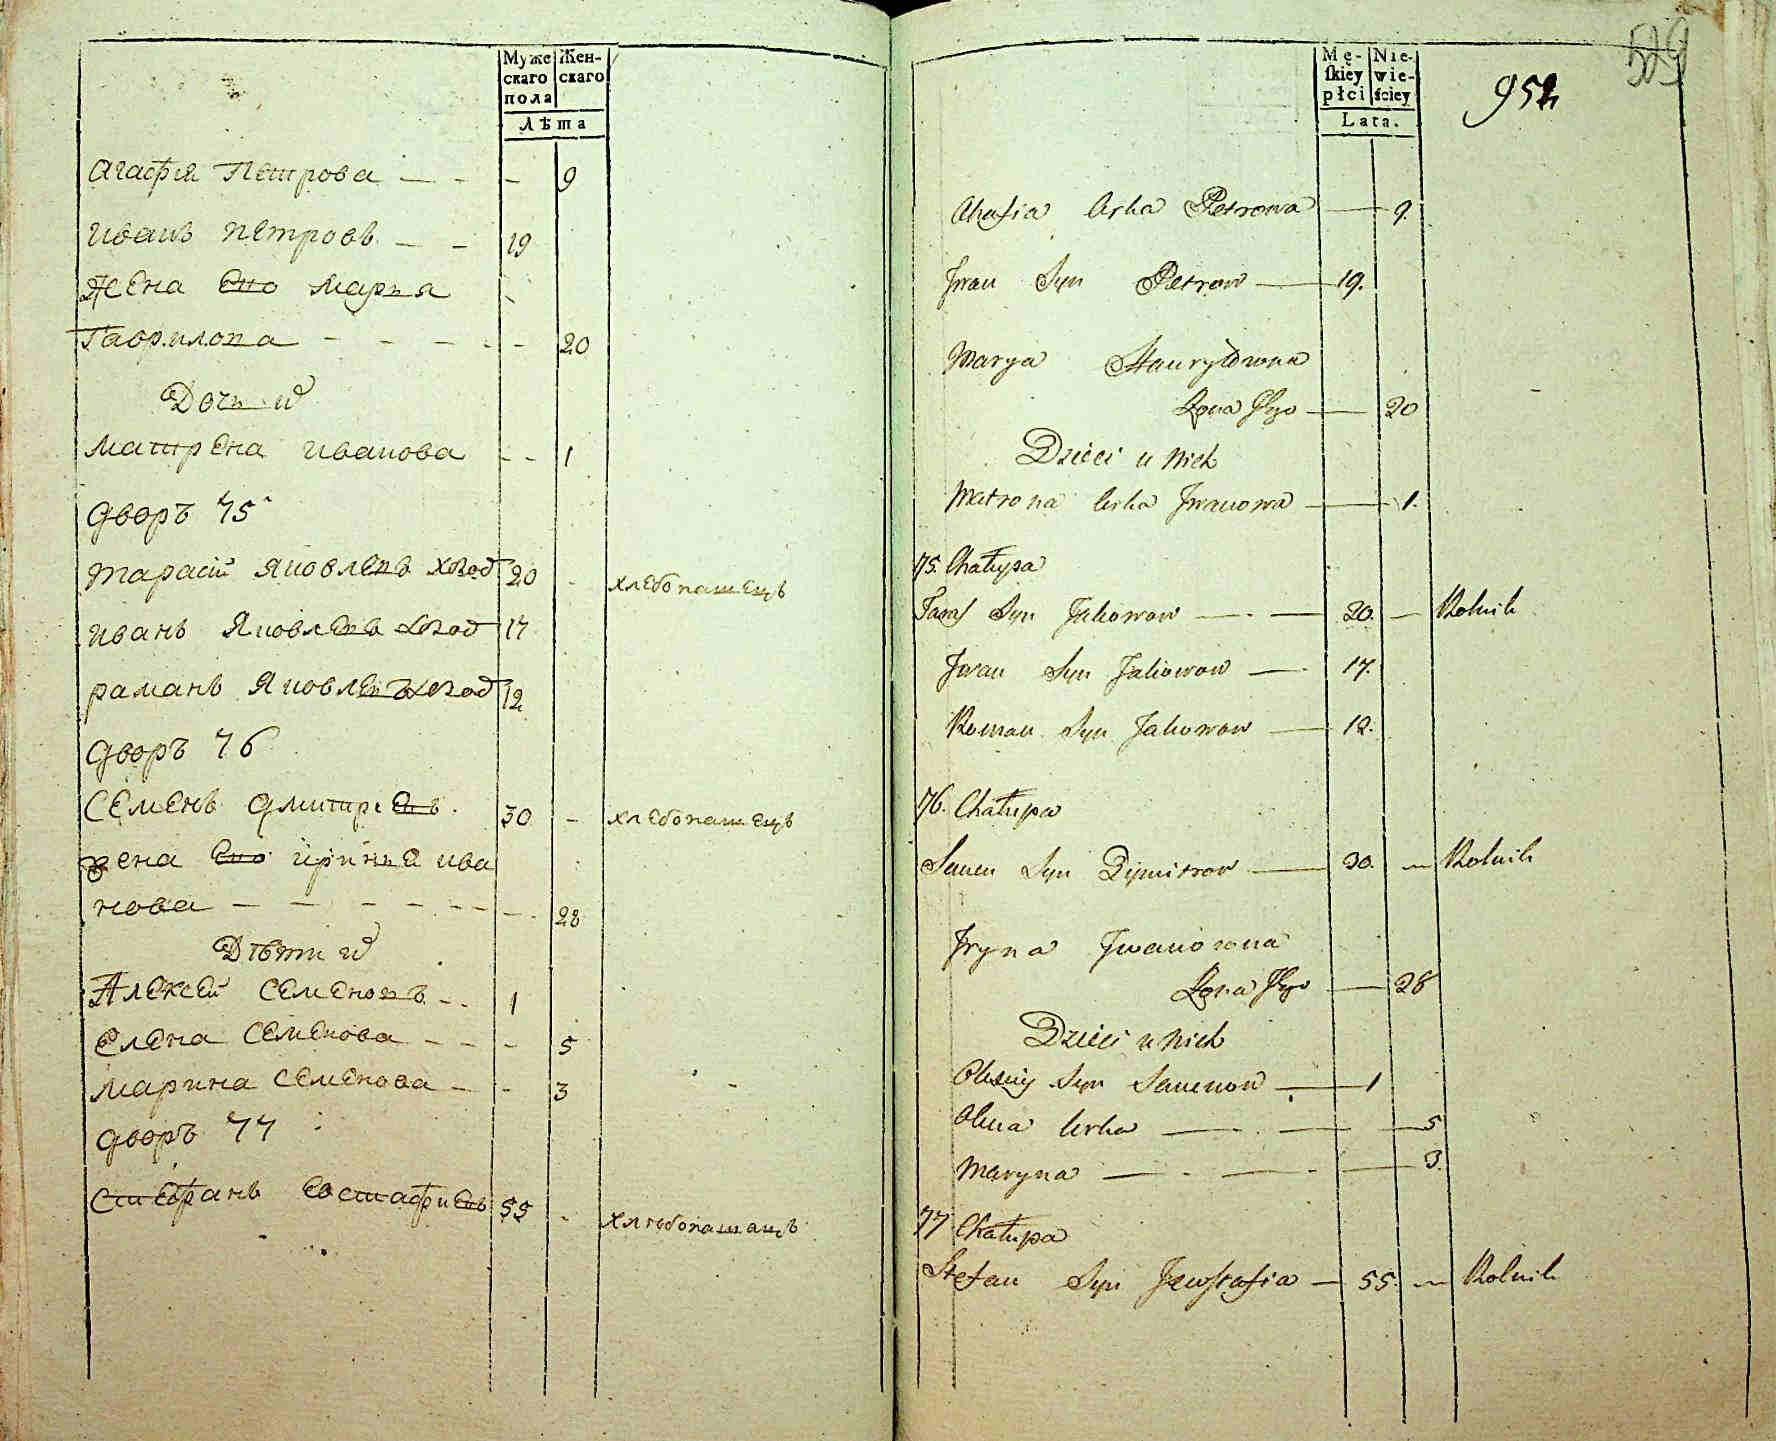 Муже
скаго
пола
Жен-
скаго
Лѣта
агафия Петрова — - - 9
иванъ петровъ — - 19
Жена Ево мария
Гаврилова - - - - - 20
Дочь и͏̆
матрена иванова - - 1
дворъ 75
тарасий яковлевъ холод 20 - хлебопашецъ
иванъ яковлевъ холод 17
раманъ яковлевъ холод 12
дворъ 76
Семенъ дмитриевъ 30 - хлебопашецъ
жена Ево ирина ива
нова - - - - - - - 28
Дѣти и͏̆
Алексей Семеновъ - - 1
Елена Семенова - - - 5
марина Семенова - - 3
дворъ 77
Стефанъ Евстафиевъ 55 - хлѣбопашацъ
Mę-
skiey
płci
Nie-
wie-
ściey
Lata.
952
529
Ahafia Crka Petrowa — 9.
Jwan Syn Petrow — 19.
Marya Hauryłowna
Żona Jego — 20
Dzieci u Nich
Matrona Crka Jwanowa — 1.
75. Chałupa
Taras Syn Jakowow — 20. — Rolnik
Jwan Syn Jakowow — 17.
Roman Syn Jakowow — 12.
76. Chałupa
Samen Syn Dymitrow — 30. — Rolnik
Jryna Jwanowna
Żona Jego — 28
Dzieci u Nich
Olexiy Syn Samenow — 1
Olena Crka — - — 5
Maryna — - — 3.
77 Chałupa
Stefan Syn Jewstafia — 55. — Rolnik